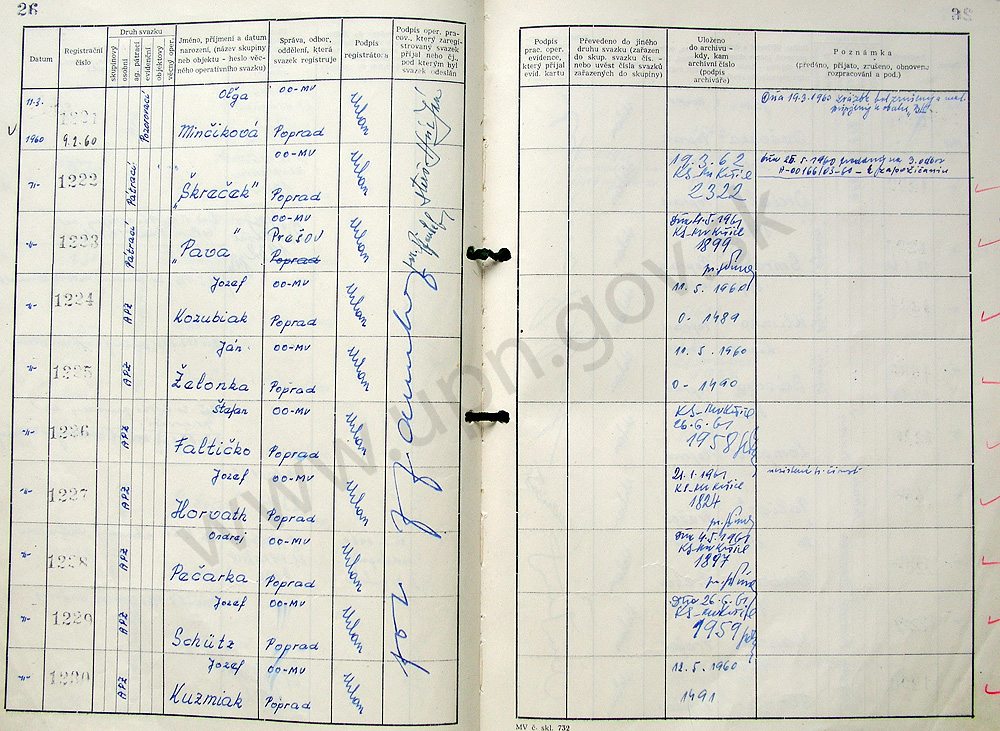 26
Datum
Registrační číslo
Druh svazku
skupinový
osobní
ag. pátrací
evidenční
objektový
věcný oper.
Jméno, příjmení a datum
narození, (název skupiny
neb objektu - heslo věc-
ného operativního svazku)
Správa, odbor,
oddělení, která
svazek registruje
Podpis
registrátora
Podpis oper. pra-
cov., který zaregi-
strovaný svazek
přijal nebo čj.,
pod kterým byl
svazek odeslán
Podpis
prac. oper.
evidence,
který přijal
evid. kartu
Převedeno do jiného
druhu svazku (zařazen
do skup. svazku čís. -
nebo uvést čísla svazků
zařazených do skupiny)
Uloženo
do archivu -
kdy, kam
archivní číslo
(podpis
archiváře)
Poznámka
(předáno, přijato, zrušeno, obnoveno
rozpracování a pod.)
11.3. 1221 Oľga OO-MV
1960 9.2.60 Pozorovací Minčiková Poprad Urban
Dňa 19.3.1960
-"- 1222 Pátrací „Škreček" OO-MV Poprad Urban
19.3.62 KS-MV Košice 2322
-"- 1223 Pátrací „Pava" OO-MV Prešov Poprad Urban
Dňa 4.5.1961 KS-MV Košice 1899
-"- 1224 APZ Jozef Kozubiak OO-MV Poprad Urban
11.5.1960 0- 1489
-"- 1225 APZ Ján Želonka OO-MV Poprad Urban
0- 1490
-"- 1226 APZ Štefan Faltičko OO-MV Poprad Urban
KS-MV Košice 26.6.61 1958
-"- 1227 APZ Jozef Horvath OO-MV Poprad Urban
21.1.1961 KS-MV Košice 1824
-"- 1228 APZ Ondrej Pečarka OO-MV Poprad Urban
Dňa 4.5.1961 KS-MV Košice 1897
-"- 1229 APZ Jozef Schütz OO-MV Poprad Urban
Dňa 26.6.61 KS-MV Košice 1959
-"- 1230 APZ Jozef Kuzmiak OO-MV Poprad Urban
12.5.1960 1491
MV č. skl. 732
www.upn.gov.sk